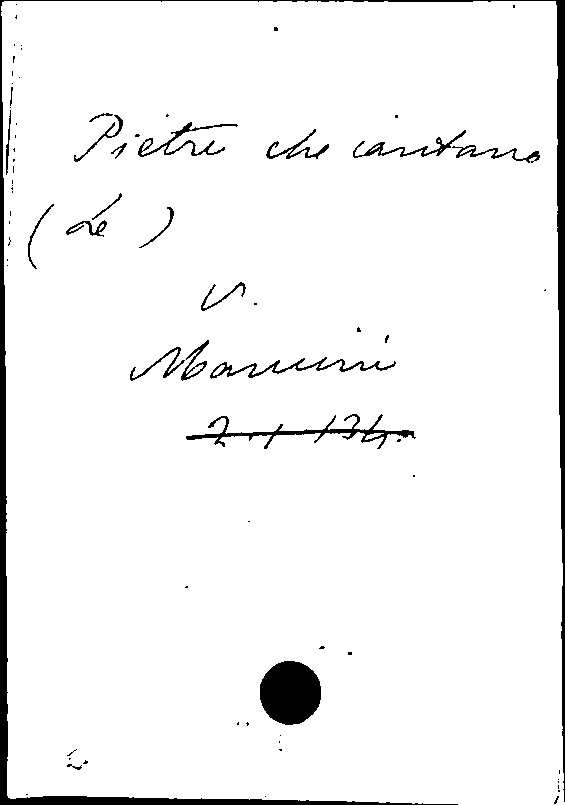 Pietre che cantano
(Le)
v.
Mancini
2.1.134.